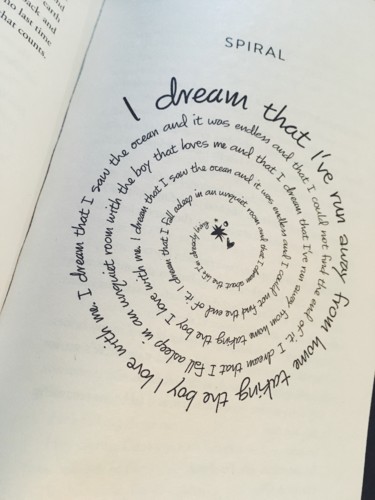 earth
ack and
no last time
hat counts.
SPIRAL
I dream that I've run away from home taking the boy I love with me. I dream that I saw the ocean and it was endless and that I could not find the end of it. I dream that I fall asleep in an unquiet room with the boy that loves me and that I dream that I've run away from home taking the boy I love with me. I dream that I saw the ocean and it was endless and I could not find the end of it. I dream that I fall asleep in an unquiet room and that I dream about the life I'm already living.